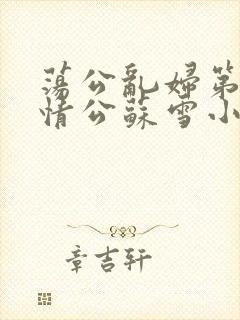 蕩公亂婦第
情公蘇雪小
章吉轩